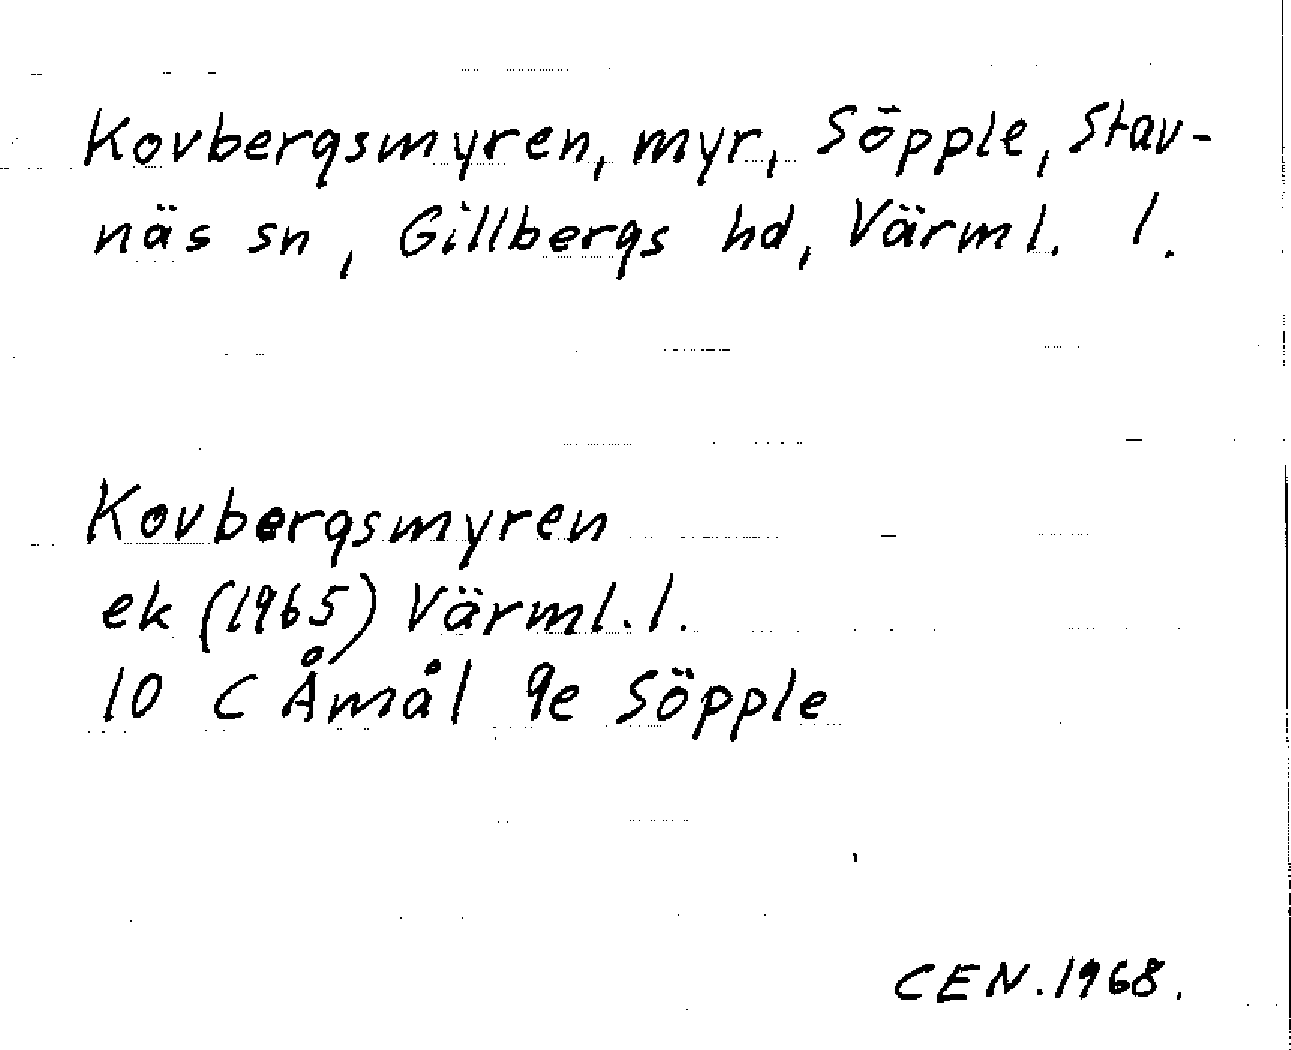 Kovbergsmyren, myr, Söpple, Stav-
näs sn, Gillbergs hd, Värml. l.
Kovbergsmyren
ek (1965) Värml. l.
10 C Åmål 9e Söpple
CEN. 1968.